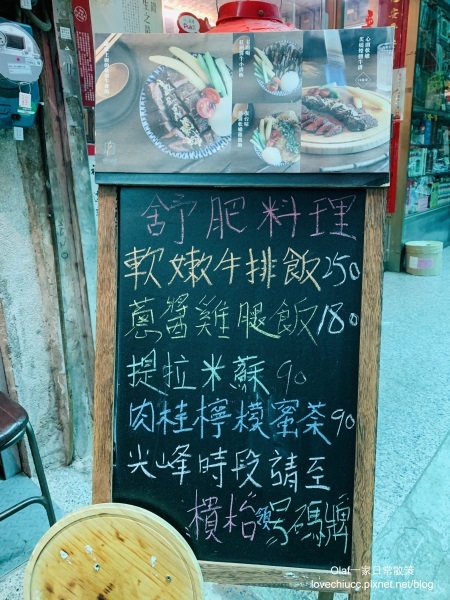 舒肥料理
軟嫩牛排飯250
蔥醬雞腿飯180
提拉米蘇 90
肉桂檸檬蜜茶90
尖峰時段請至
櫃枱領号碼牌
Olaf一家日常散策
lovechiucc.pixnet.net/blog